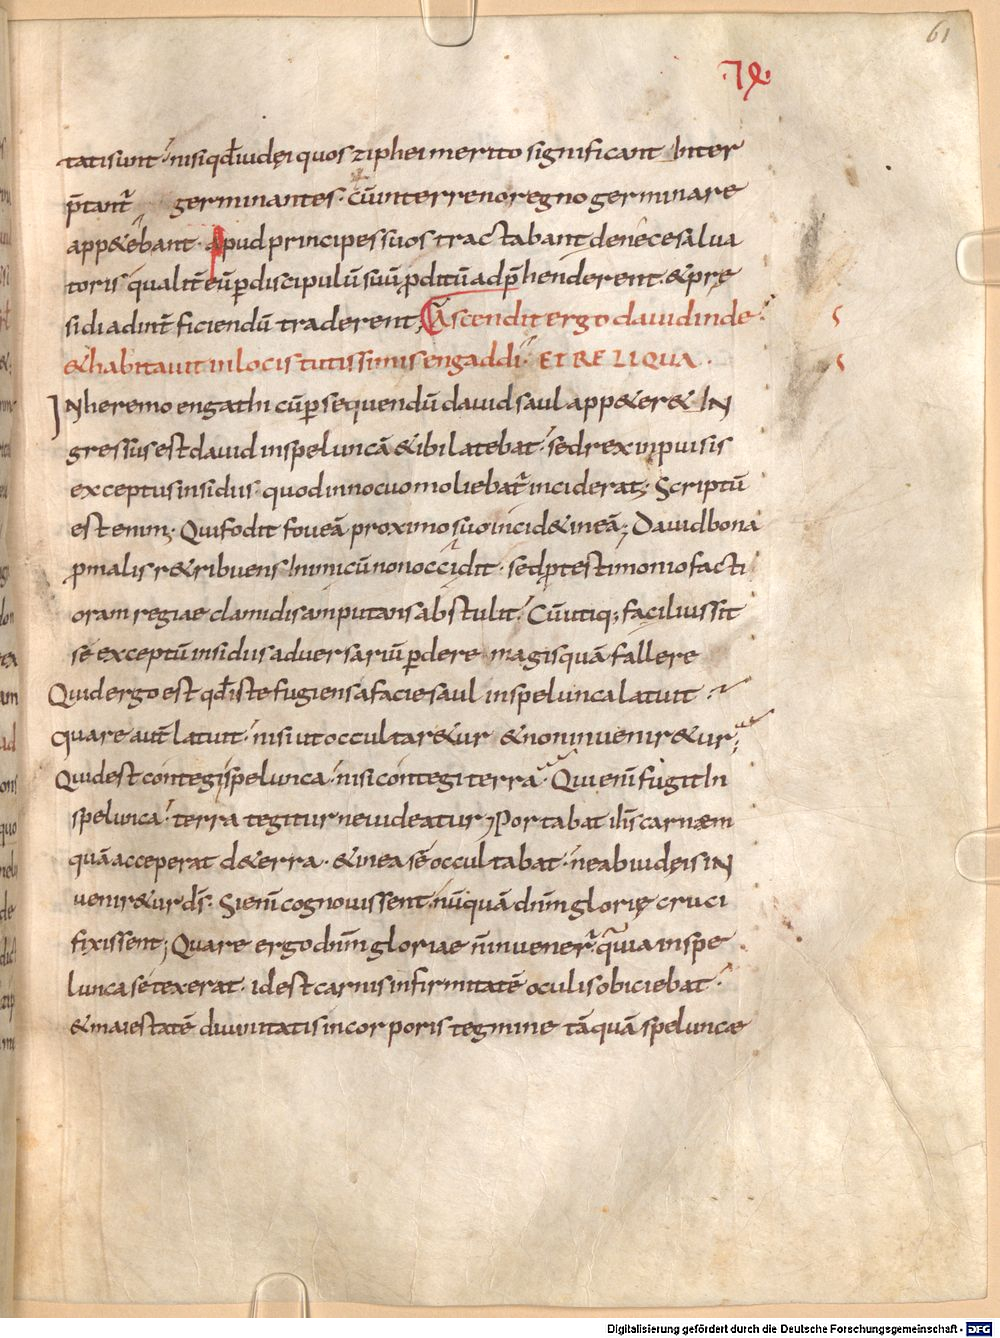 61
tatis unt nisi qđ iudęi quos ziphei merito significant Inter
p̄tant̄ germinantes · cū in terreno regno germinare
app&ebant · Apud principes suos tractabant de nece salua
toris qualit̄ eū ꝑ discipulū suū ꝓditū adp̄henderent · & prę
sidi ad int̄ficiendū traderent; Ascendit ergo dauid inde
& habitauit in locis tutissimis engaddi · ET RELIQUA ·
IN heremo engathi cū ꝑsequendū dauid saul app&er& IN
gressus est dauid in speluncā & ibi latebat · sed rex inpuisis
exceptus insidiis · quod innocuo moliebat̄ inciderat; Scriptū
est enim · Qui fodit foueā proximo suo incid& in eā; Dauid bona
ꝓ malis r&ribuens Inimicū non occidit · sed ꝓ testimonio facti
oram regiae clamidis amputans abstulit · Cū utiq; faciliussit
se exceptū insidiis aduersariū ꝑdere magis quā fallere
Quid ergo est qđ iste fugiens a facie saul in spelunca latuit
quare aut̄ latuit · nisi ut occultar&ur & non inuenir&ur;
Quid est contegi spelunca · nisi contegi terra · Qui enī fugit In
spelunca · terra tegitur ne uideatur; Portabat ihs carnæm
quā acceperat de terra · & in ea sē occultabat · ne ab iudęis IN
uenir&ur d̄s · Si enī cognouissent · nūquā dn̄m glorię cruci
fixissent; Quare ergo dn̄m gloriae n̄ inuener̄ · quia in spe
lunca se texerat · id est carnis infirmitatē oculis obiciebat ·
& maiestatē diuinitatis in corporis tegmine tāquā speluncæ
Digitalisierung gefördert durch die Deutsche Forschungsgemeinschaft · DFG